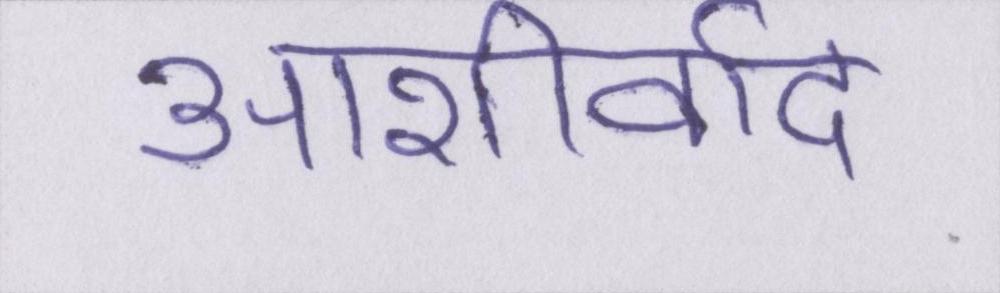 आशीर्वाद